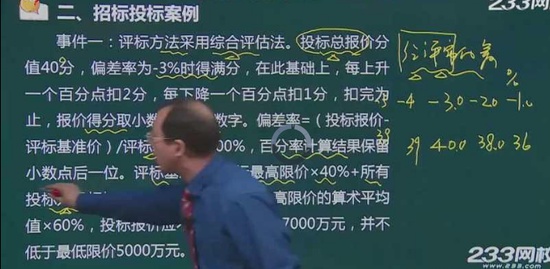 二、招标投标案例
233网校
事件一：评标方法采用综合评估法。投标总报价分
值40分，偏差率为-3%时得满分，在此基础上，每上升
一个百分点扣2分，每下降一个百分点扣1分，扣完为
止，报价得分取小数 数字。偏差率=（投标报价-
评标基准价）/评标 00%，百分率计算结果保留
小数点后一位。 最高限价×40%+所有
投标 高限价的算术平均
值×60%，投标报价应 7000万元，并不
低于最低限价5000万元。
%
-4 -3.0 -2.0 -1.0
39 40.0 38.0 36
39
233网校
www.233.com